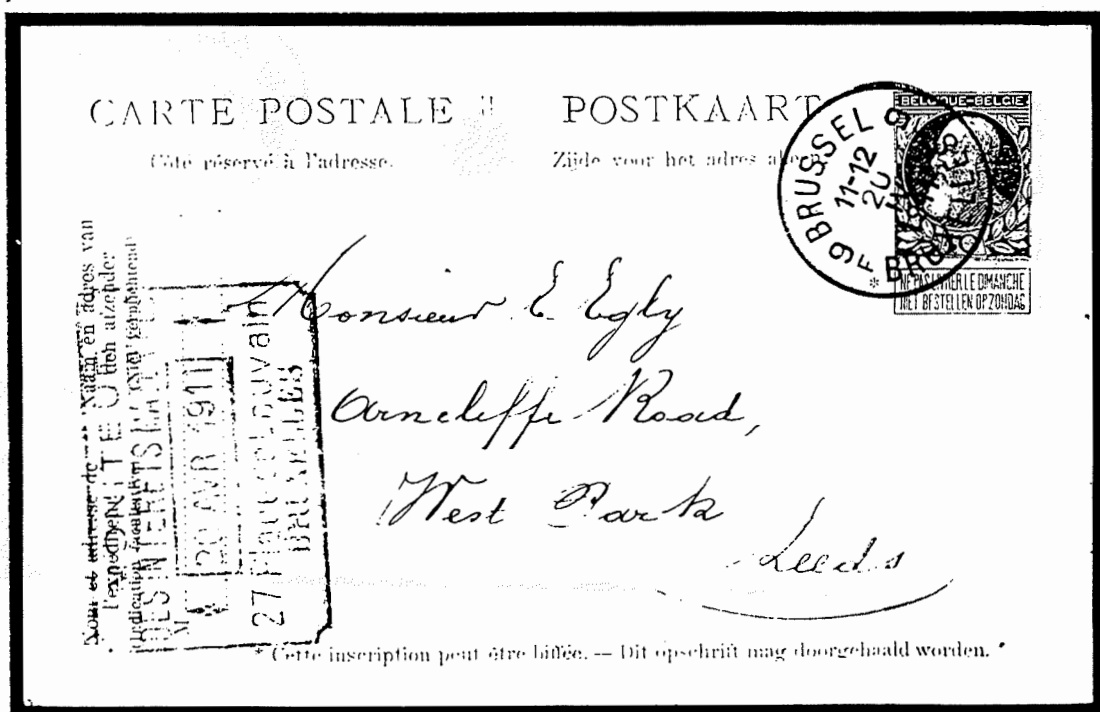 CARTE POSTALE POSTKAART
Côté réservé à l'adresse. Zijde voor het adres
BELGIQUE-BELGIE
9 BRUSSEL 9
11-12
20
1911
F
* BRUXELLES
10
NE PAS LIVRER LE DIMANCHE
NIET BESTELLEN OP ZONDAG
Nom et adresse de Naam en adres van
l'expéditeur den afzender
DES INTERETS
M
20 AVR 1911
27 Place de Louvain
BRUXELLES
Monsieur E. Egly
Arncliffe Road,
West Park
Leeds
* Cette inscription peut être biffée. — Dit opschrift mag doorgehaald worden. *